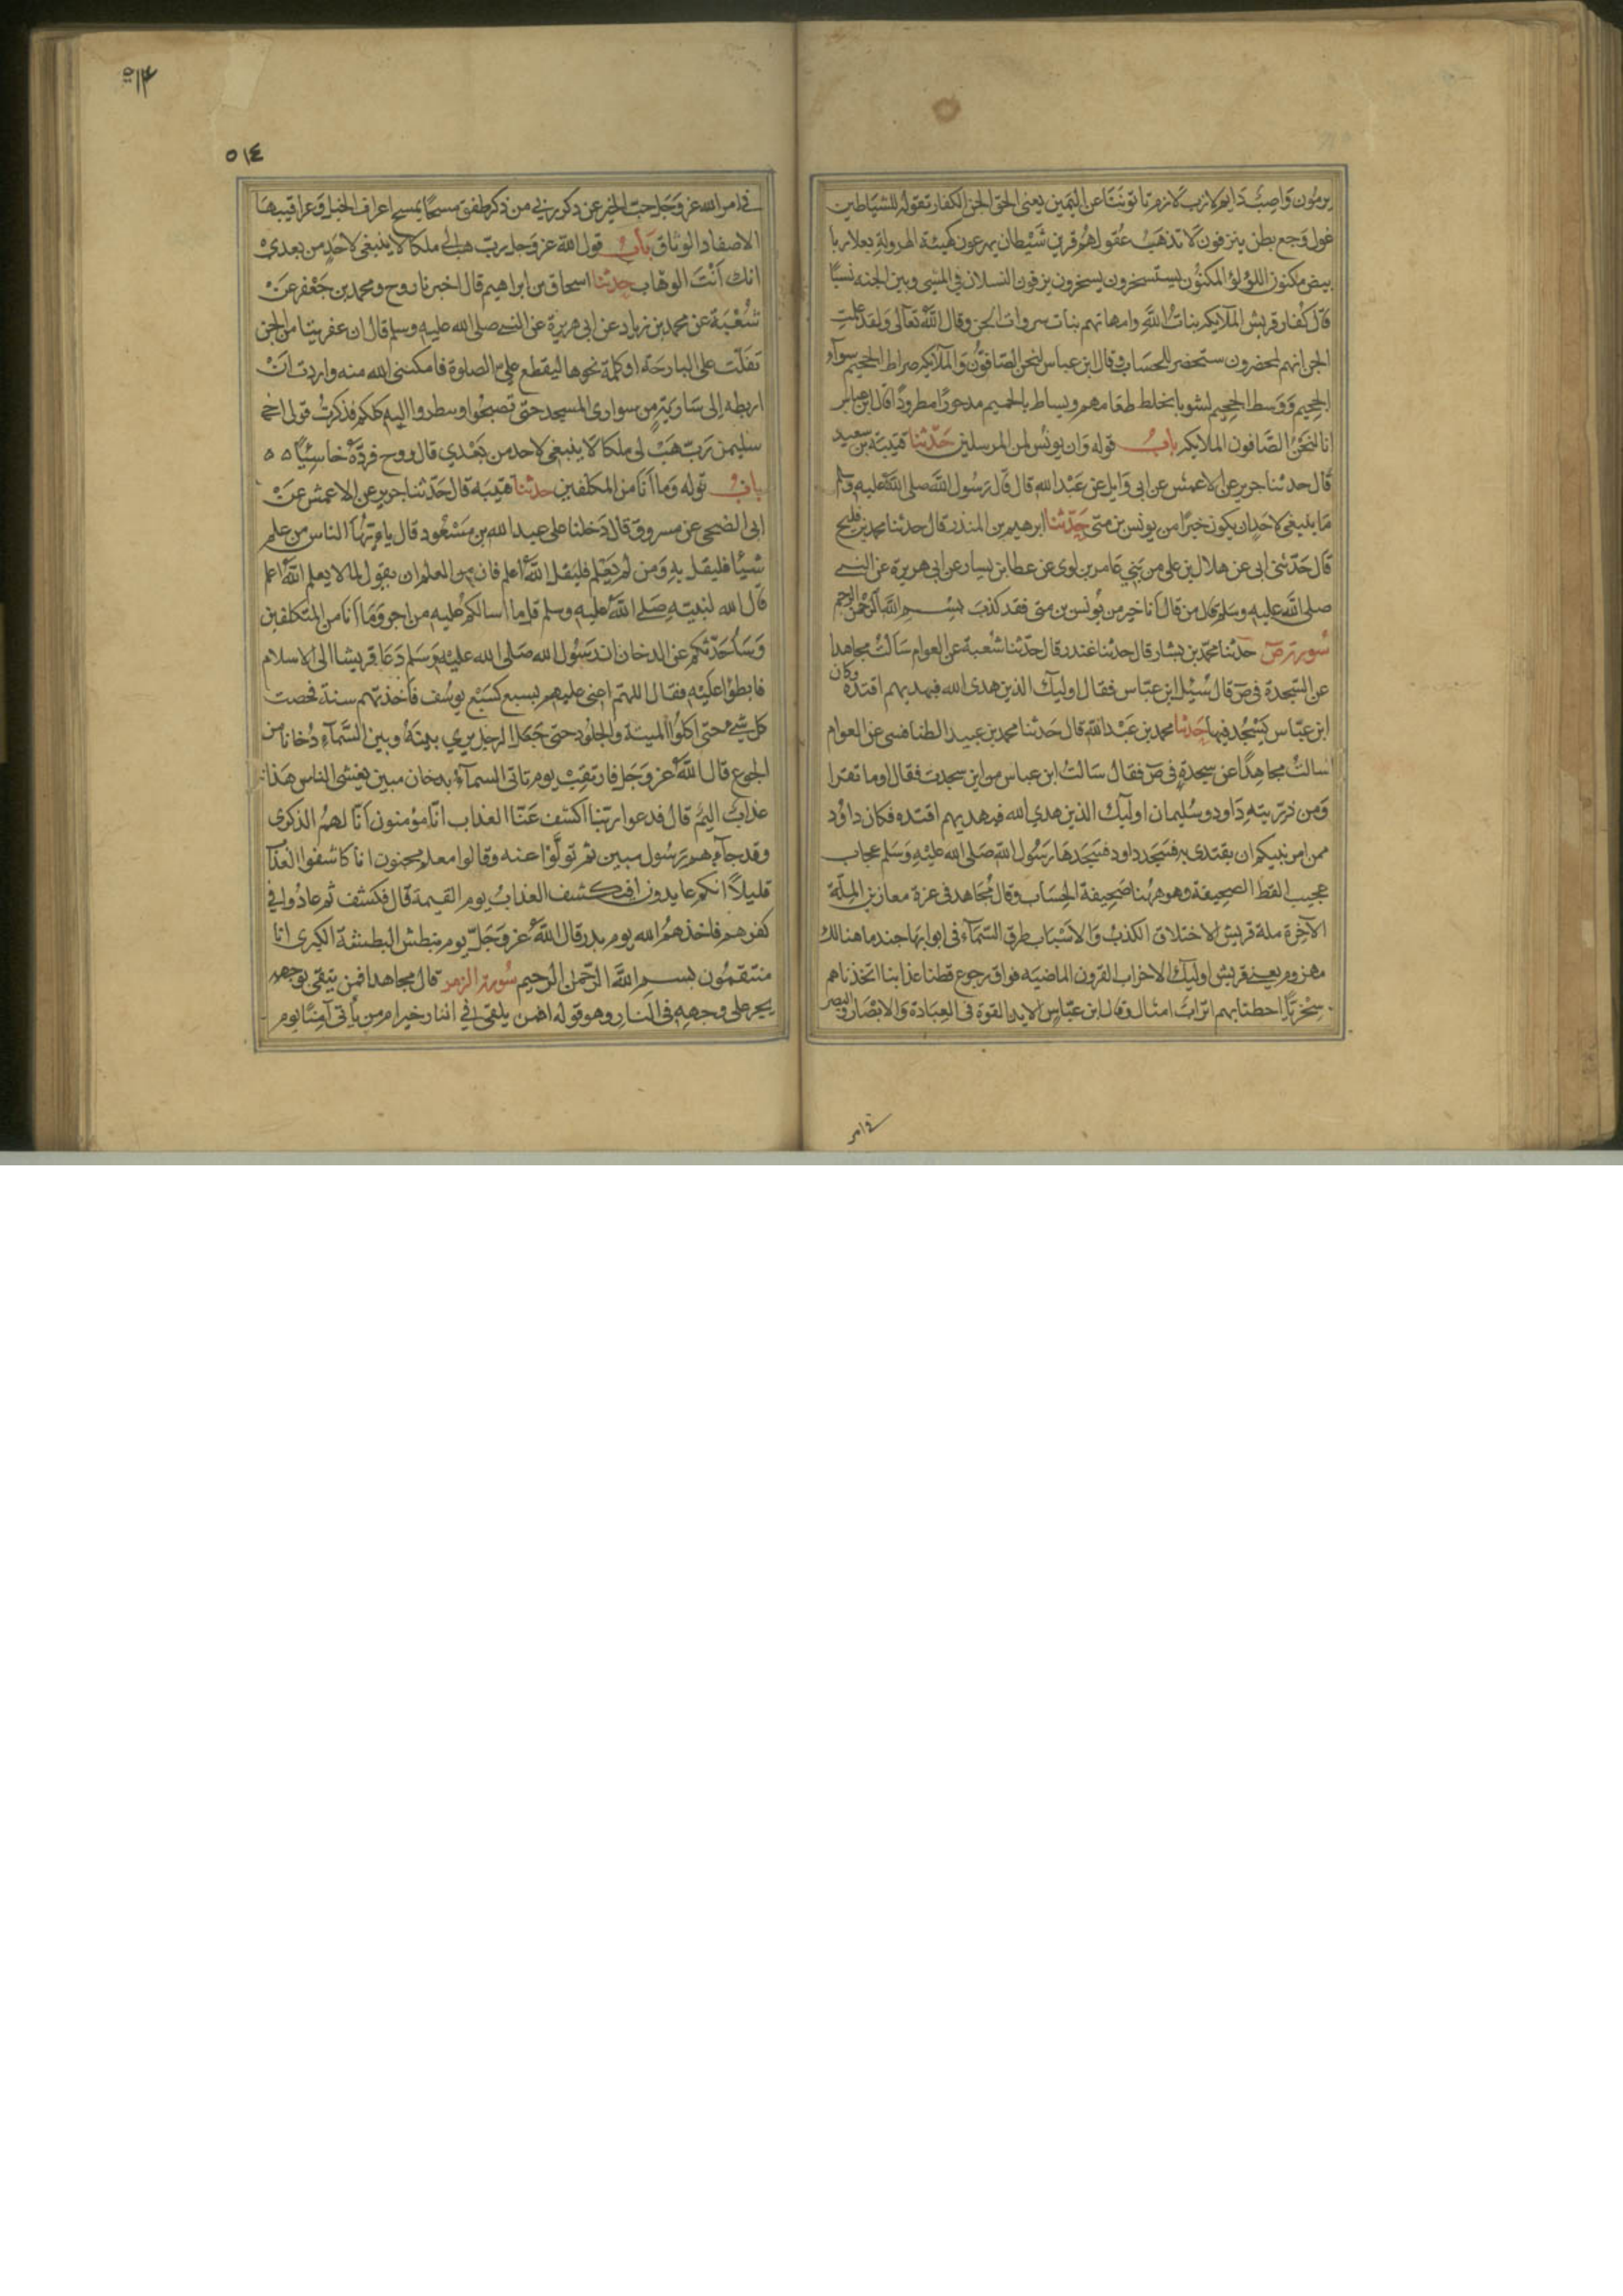 يرمون واصب دايم لازب لازم تاتوننا عن اليمين يعنى الحق الجن الكفار تقوله للشياطين
غول وجع بطن ينزفون لا تذهب عقولهم قرين شيطان يهرعون كهيئة الهرولة بعلا ربا
بيض مكنون اللؤلؤ المكنون يستسخرون يسخرون يزفون النسلان فى المشى وبين الجنه نسبا
قال كفار قريش الملآيكه بنات الله وامهاتهم بنات سروات الجن وقال الله تعالى ولقد علمت
الجن انهم لمحضرون ستحضر للحساب وقال ابن عباس لنحن الصافون والملآيكه صراط الجحيم سوآء
الجحيم ووسط الجحيم لشوبا يخلط طعامهم ويساط بالحميم مدحورا مطرودا قال ابن عباس
انا لنحن الصافون الملايكه باب قوله وان يونس لمن المرسلين حدثنا قتيبة بن سعيد
قال حدثنا جرير عن الاعمش عن ابى وايل عن عبد الله قال قال رسول الله صلى الله عليه وسلم
ما ينبغى لاحد ان يكون خيرا من يونس بن متى حدثنا ابرهيم بن المنذر قال حدثنا محمد بن فليح
قال حدثنى ابى عن هلال بن على من بنى عامر بن لوى عن عطا بن يسار عن ابى هريرة عن النبى
صلى الله عليه وسلم قال من قال انا خير من يونس بن متى فقد كذب بسم الله الرحمن الرحيم
سورة ص حدثنا محمد بن بشار قال حدثنا غندر قال حدثنا شعبة عن العوام سالت مجاهدا
عن السجدة فى ص قال سئيل ابن عباس فقال اوليك الذين هدى الله فبهديهم اقتده وكان
ابن عباس يسجد فيها حدثنا محمد بن عبد الله قال حدثنا محمد بن عبيد الطنافسى عن العوام
سالت مجاهدا عن سجدة فى ص فقال سالت ابن عباس من اين سجدت فقال اوما تقرا
ومن ذريته داود وسليمان اوليك الذين هدى الله فبهديهم اقتده فكان داود
ممن امر نبيكم ان يقتدى به فسجد داود فسجدها رسول الله صلى الله عليه وسلم عجاب
عجيب القط الصحيفة وهو ههنا صحيفة الحساب وقال مجاهد فى عزة معازين الملة
الآخرة ملة قريش الاختلاق الكذب والاسباب طرق السمآء فى ابوابها جند ما هنالك
مهزوم يعنى قريش اوليك الاحزاب القرون الماضيه فواق رجوع قطنا عذابنا اتخذناهم
سخريا احطنا بهم اتراب امثال وقال ابن عباس الايد القوة فى العبادة والابصار البصر
فى امر
٥١٤
٥١٤
فى امر الله عز وجل حب الخير عن ذكر ربى من ذكر طفق مسحا يمسح اعراف الخيل وعراقيبها
الاصفاد الوثاق باب قول الله عز وجل رب هب لى ملكا لا ينبغى لاحد من بعدى
انك انت الوهاب حدثنا اسحاق بن ابراهيم قال اخبرنا روح ومحمد بن جعفر عن
شعبة عن محمد بن زياد عن ابى هريرة عن النبى صلى الله عليه وسلم قال ان عفريتا من الجن
تفلت على البارحة او كلمة نحوها ليقطع على الصلوة فامكننى الله منه واردت ان
اربطه الى سارية من سوارى المسجد حتى تصبحوا وسطروا اليه كلكم فذكرت قول اخى
سليمن رب هب لى ملكا لا ينبغى لاحد من بعدي قال روح فرده خاسئيا ٥ ٥
باب قوله وما انا من المتكلفين حدثنا قتيبه قال حدثنا جرير عن الاعمش عن
ابى الضحى عن مسروق قال دخلنا على عبد الله بن مسعود قال يا ايها الناس من علم
شيئا فليقل به ومن لم يعلم فليقل الله اعلم فان من العلم ان يقول لما لا يعلم الله اعلم
قال الله لنبيه صلى الله عليه وسلم قل ما اسالكم عليه من اجر وما انا من المتكلفين
وساحدثكم عن الدخان ان رسول الله صلى الله عليه وسلم دعا قريشا الى الاسلام
فابطؤا عليه فقال اللهم اعنى عليهم بسبع كسبع يوسف فاخذتهم سنة فحصت
كل شئ حتى اكلوا الميتة والجلود حتى جعل الرجل يرى بينه وبين السمآء دخانا من
الجوع قال الله عز وجل فارتقب يوم تاتى السمآء بدخان مبين يغشى الناس هذا
عذاب اليم قال فدعوا ربنا اكشف عنا العذاب انا مؤمنون انا لهم الذكرى
وقد جآءهم رسول مبين ثم تولوا عنه وقالوا معلم مجنون انا كاشفوا العذاب
قليلا انكم عايدون افيكشف العذاب يوم القيمة قال فكشف ثم عادوا فى
كفرهم فاخذهم الله يوم بدر قال الله عز وجل يوم نبطش البطشة الكبرى انا
منتقمون بسم الله الرحمن الرحيم سورة الزمر قال مجاهد افمن يتقى بوجهه
يجر على وجهه فى النار وهو قوله افمن يلقى فى النار خير ام من ياتى آمنا يوم